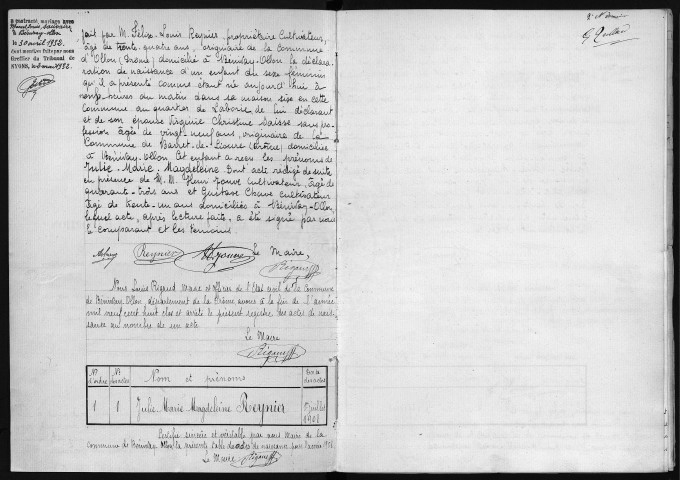 A contracté mariage avec
à Bénivay-Ollon
le 30 avril 1932.
dont mention faite par nous
Greffier du Tribunal de
NYONS, le
fait par M. Félix Louis Reynier, propriétaire cultivateur,
âgé de trente quatre ans, originaire de la commune
d'Ollon (Drôme) domicilié à Bénivay-Ollon la décla-
ration de naissance d'un enfant du sexe féminin
qu'il a présenté comme étant née aujourd'hui à
onze heures du matin dans sa maison sise en cette
commune au quartier de Laborie de lui déclarant
et de son épouse Virginie Christine Daisse sans pro-
fession âgée de vingt-neuf ans, originaire de la
commune de Barret-de-Lioure (Drôme) domiciliée
à Bénivay-Ollon Cet enfant a reçu les prénoms de
Julie-Marie-Magdeleine. Dont acte rédigé de suite
en présence de M. M. Henri Jouve cultivateur, âgé de
quarante-trois ans et Gustave Chauve cultivateur
âgé de trente-un ans domiciliés à Bénivay-Ollon,
lequel acte, après lecture faite, a été signé par nous
le comparant et les témoins.
Reynier Le Maire,
Rigaud
Nous Louis Rigaud Maire et officier de l'Etat civil de la commune
de Bénivay-Ollon, département de la Drôme, avons à la fin de l'année
mil neuf cent huit clos et arrêté le présent registre des actes de nais-
sance au nombre de un acte.
Le Maire
Rigaud
Nos d'ordre Nos des actes Nom et prénoms Date des actes
1 1 Julie Marie Magdeleine Reynier 1 juillet 1908
Certifié sincère et véritable par nous Maire de la
commune de Bénivay-Ollon la présente table des actes de naissance pour l'année 1908.
Le Maire Rigaud